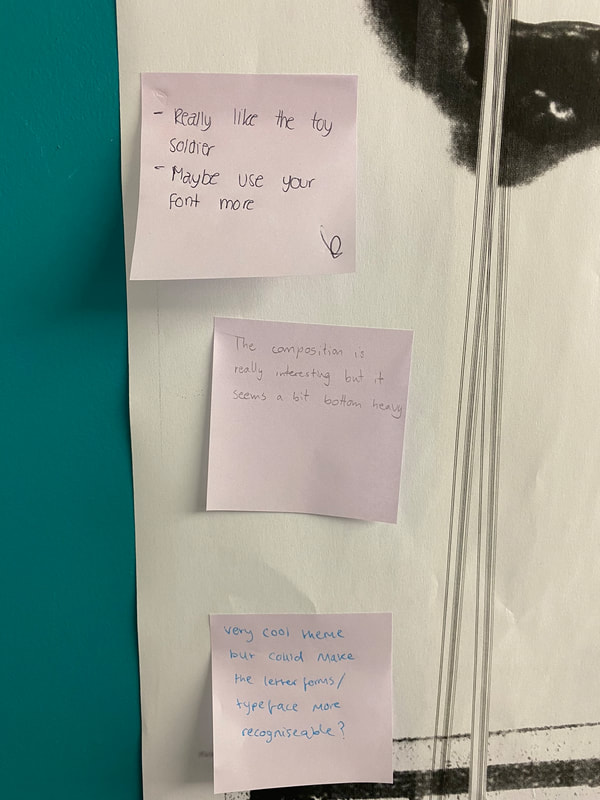 - Really like the toy
soldier
- Maybe use your
font more
The composition is
really interesting but it
seems a bit bottom heavy
very cool theme
but could make
the letter forms/
typeface more
recogniseable?